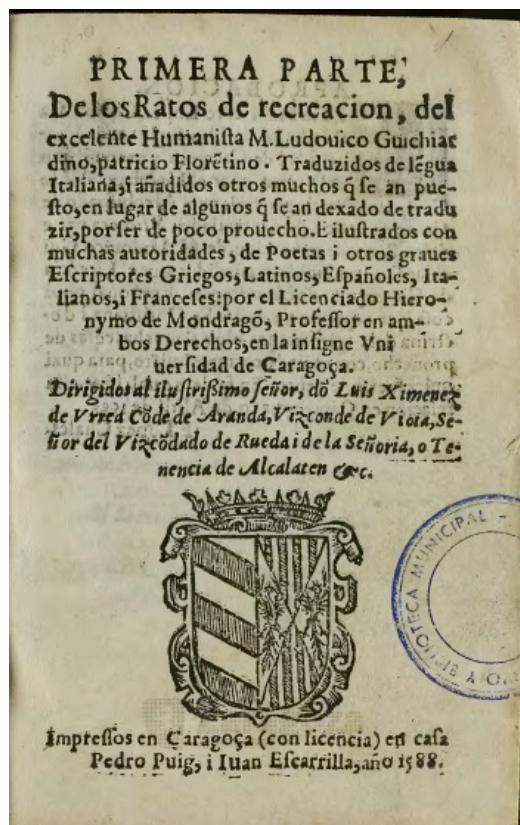 PRIMERA PARTE,
De los Ratos de recreacion, del
excelẽte Humaniſta M. Ludouico Guichiar
dino, patricio Florẽtino. Traduzidos de lẽgua
Italiana, i añadidos otros muchos q̃ ſe an pue-
ſto, en lugar de algunos q̃ ſe an dexado de tradu
zir, por ſer de poco prouecho. E iluſtrados con
muchas autoridades, de Poetas i otros graues
Eſcriptores Griegos, Latinos, Eſpañoles, Ita-
lianos, i Franceſes: por el Licenciado Hiero-
nymo de Mondragõ, Profeſſor en am-
bos Derechos, en la inſigne Vni
uerſidad de Caragoça.
Dirigidos al iluſtriſsimo ſeñor, dõ Luis Ximenez
de Vrrea Cõde de Aranda, Vizconde de Viota, Se-
ñor del Vizcõdado de Rueda i de la Señoria, o Te-
nencia de Alcalaten &c.
Impreſſos en Caragoça (con licẽcia) en caſa
Pedro Puig, i Iuan Eſcarrilla, año 1588.
Y BIBLIOTECA MUNICIPAL -